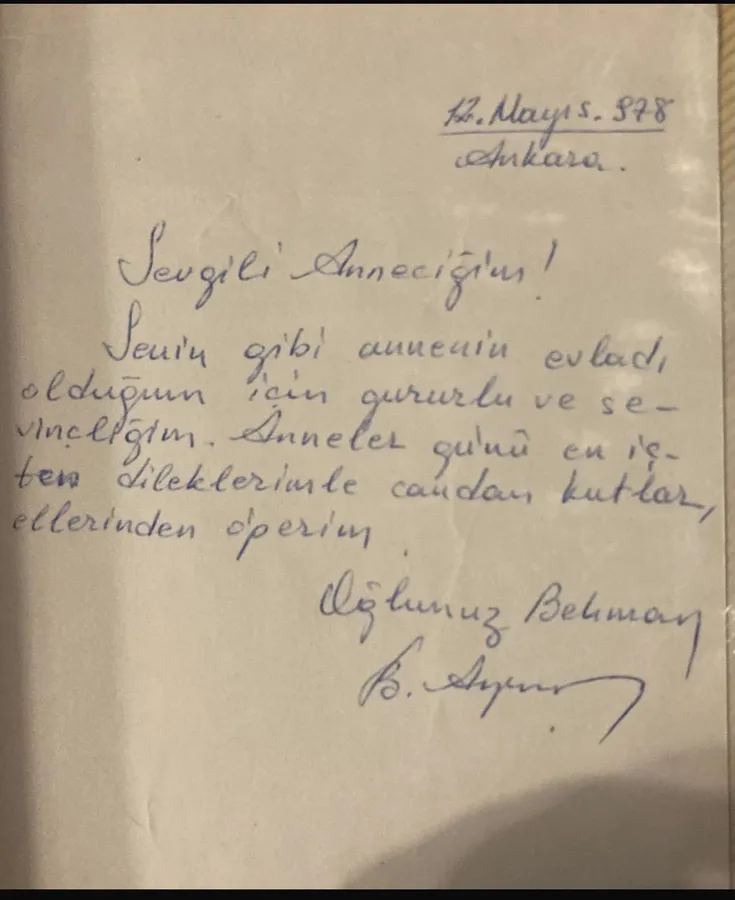 12. Mayıs. 978
Ankara.
Sevgili Anneciğim!
Senin gibi annenin evladı
olduğum için gururlu ve se-
vinçliğim. Anneler günü en iç-
ten dileklerimle candan kutlar,
ellerinden öperim.
Oğlunuz Behman
B.